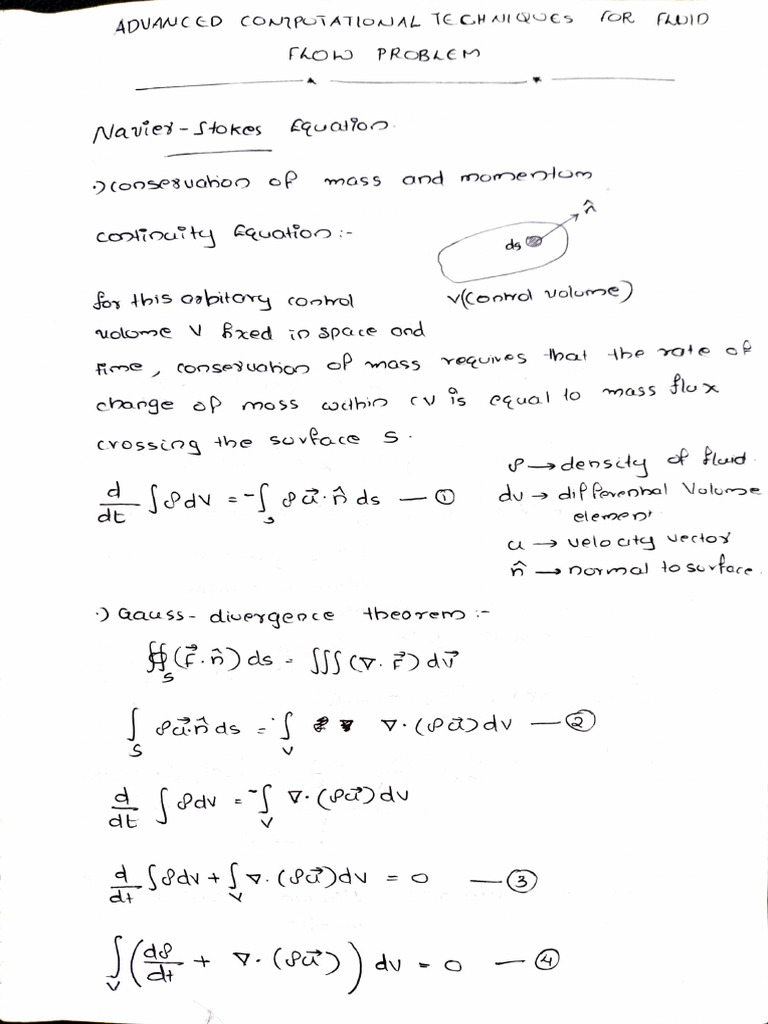 ADVANCED COMPUTATIONAL TECHNIQUES FOR FLUID
FLOW PROBLEM
Navier-Stokes Equation.
·) conservation of mass and momentum
continuity Equation:-
n̂
ds
V(Control volume)
for this arbitary control
volume V fixed in space and
time, conservation of mass requires that the rate of
change of mass within CV is equal to mass flux
crossing the surface S.
d/dt ∫ρdV = -∫_s ρu⃗·n̂ ds — ①
ρ → density of fluid.
dv → differential Volume
element.
u → velocity vector
n̂ → normal to surface.
·) Gauss-divergence theorem:-
∯_S (F⃗·n̂) ds = ∭ (∇·F⃗) dv⃗
∫_S ρu⃗·n̂ ds = ∫_V ∇·(ρu⃗) dv — ②
d/dt ∫ρdv = -∫_V ∇·(ρu⃗) dv
d/dt ∫ρdv + ∫_V ∇·(ρu⃗) dv = 0 — ③
∫_V (dρ/dt + ∇·(ρu⃗)) dv = 0 — ④